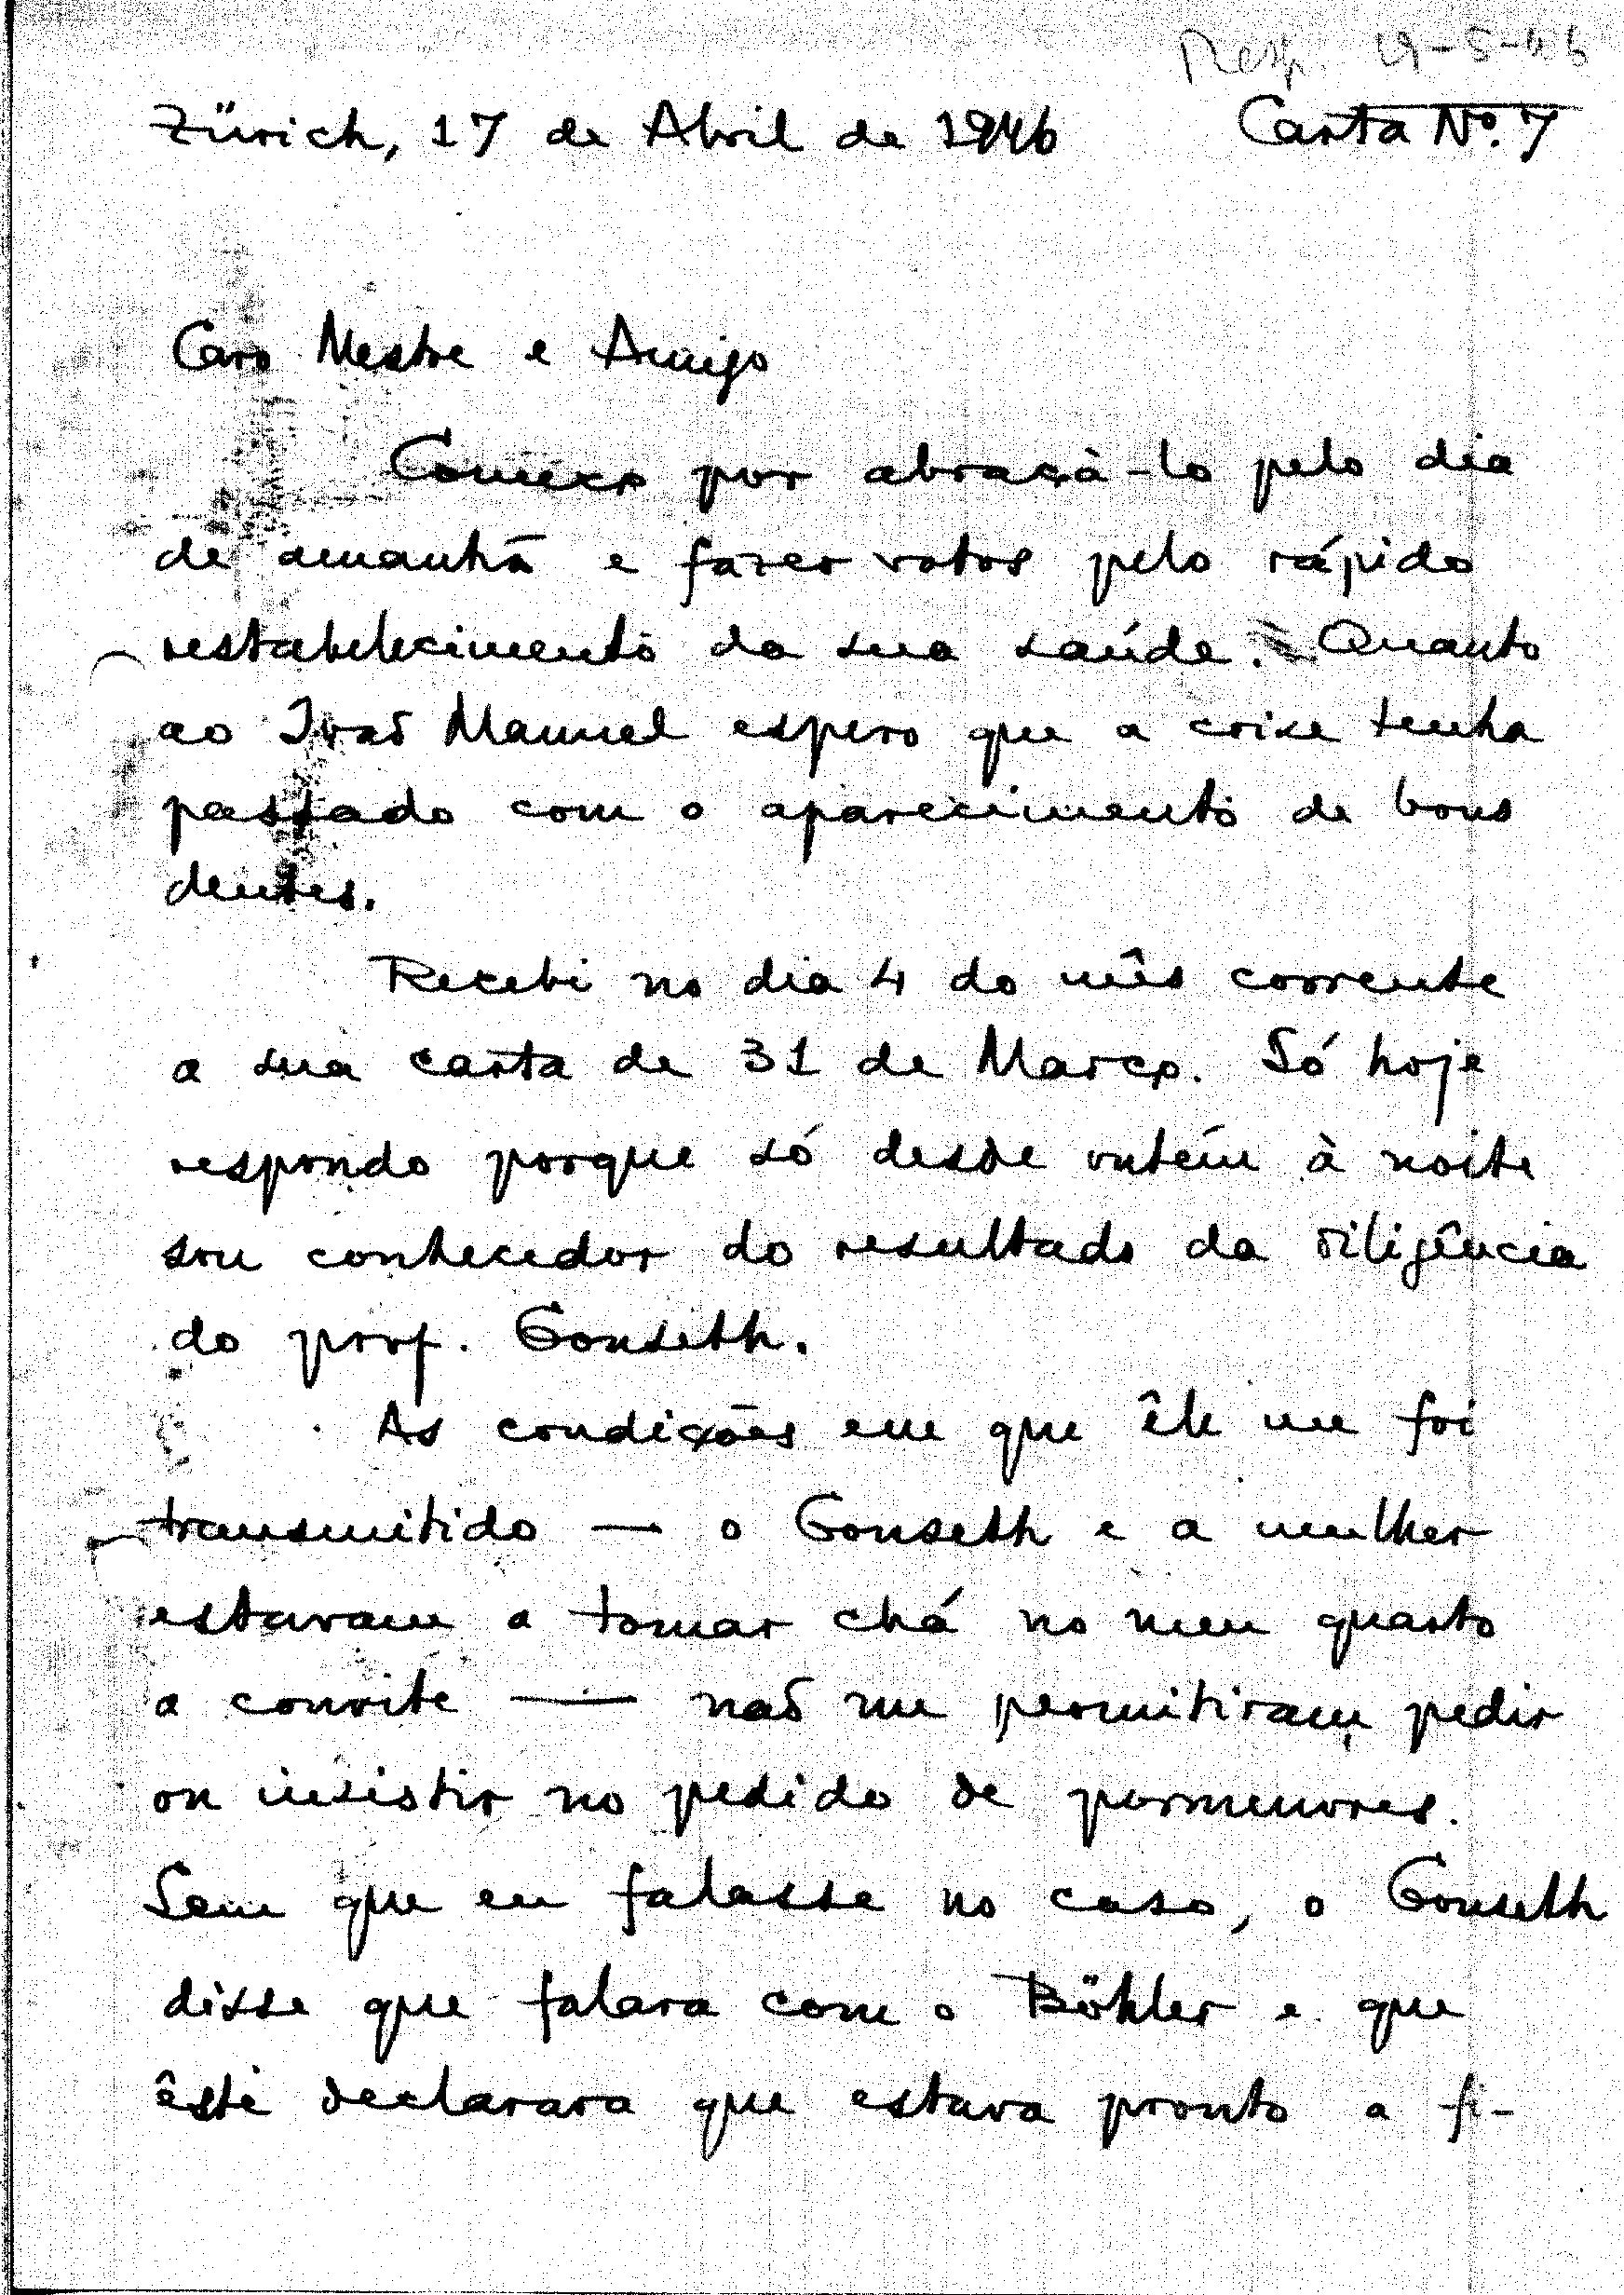 Resp. 19-5-46
Zürich, 17 de Abril de 1946 Carta Nº. 7
Caro Mestre e Amigo
Começo por abraçá-lo pelo dia
de amanhã e fazer votos pelo rápido
restabelecimento da sua saúde. Quanto
ao João Manuel espero que a crise tenha
passado com o aparecimento de bons
dentes.
Recebi no dia 4 do mês corrente
a sua carta de 31 de Março. Só hoje
respondo porque só desde ontém à noite
sou conhecedor do resultado da diligência
do prof. Gonseth.
As condições em que êle me foi
transmitido — o Gonseth e a mulher
estavam a tomar chá no meu quarto
a convite — não me permitiram pedir
ou insistir no pedido de pormenores.
Sem que eu falasse no caso, o Gonseth
disse que falara com o Böhler e que
êste declarara que estava pronto a fi-